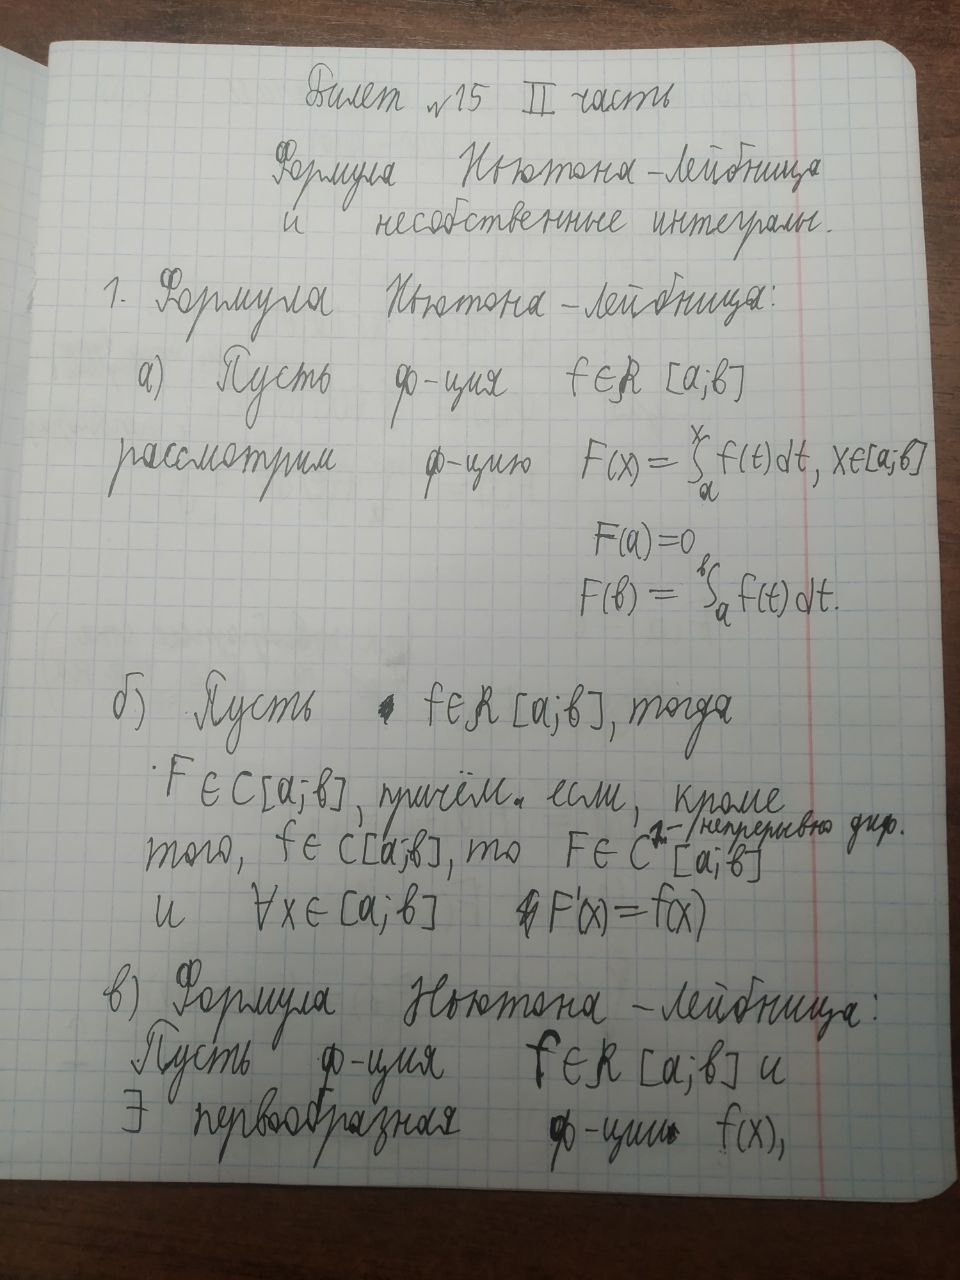 Билет №15 II часть
Формула Ньютона-Лейбница
и несобственные интегралы.
1. Формула Ньютона-Лейбница:
а) Пусть ф-ция f∈R [a;в]
рассмотрим ф-цию F(x) = ∫ₐˣ f(t)dt, x∈[a;в]
F(a)=0
F(в) = ∫ₐᵇ f(t)dt.
б) Пусть f∈R [a;в], тогда
F∈C[a;в], причём если, кроме
того, f∈C[a;в], то F∈C¹ [a;в] - /непрерывно диф.
и ∀x∈[a;в] F'(x)=f(x)
в) Формула Ньютона-Лейбница:
Пусть ф-ция f∈R [a;в] и
∃ первообразная ф-ции f(x),